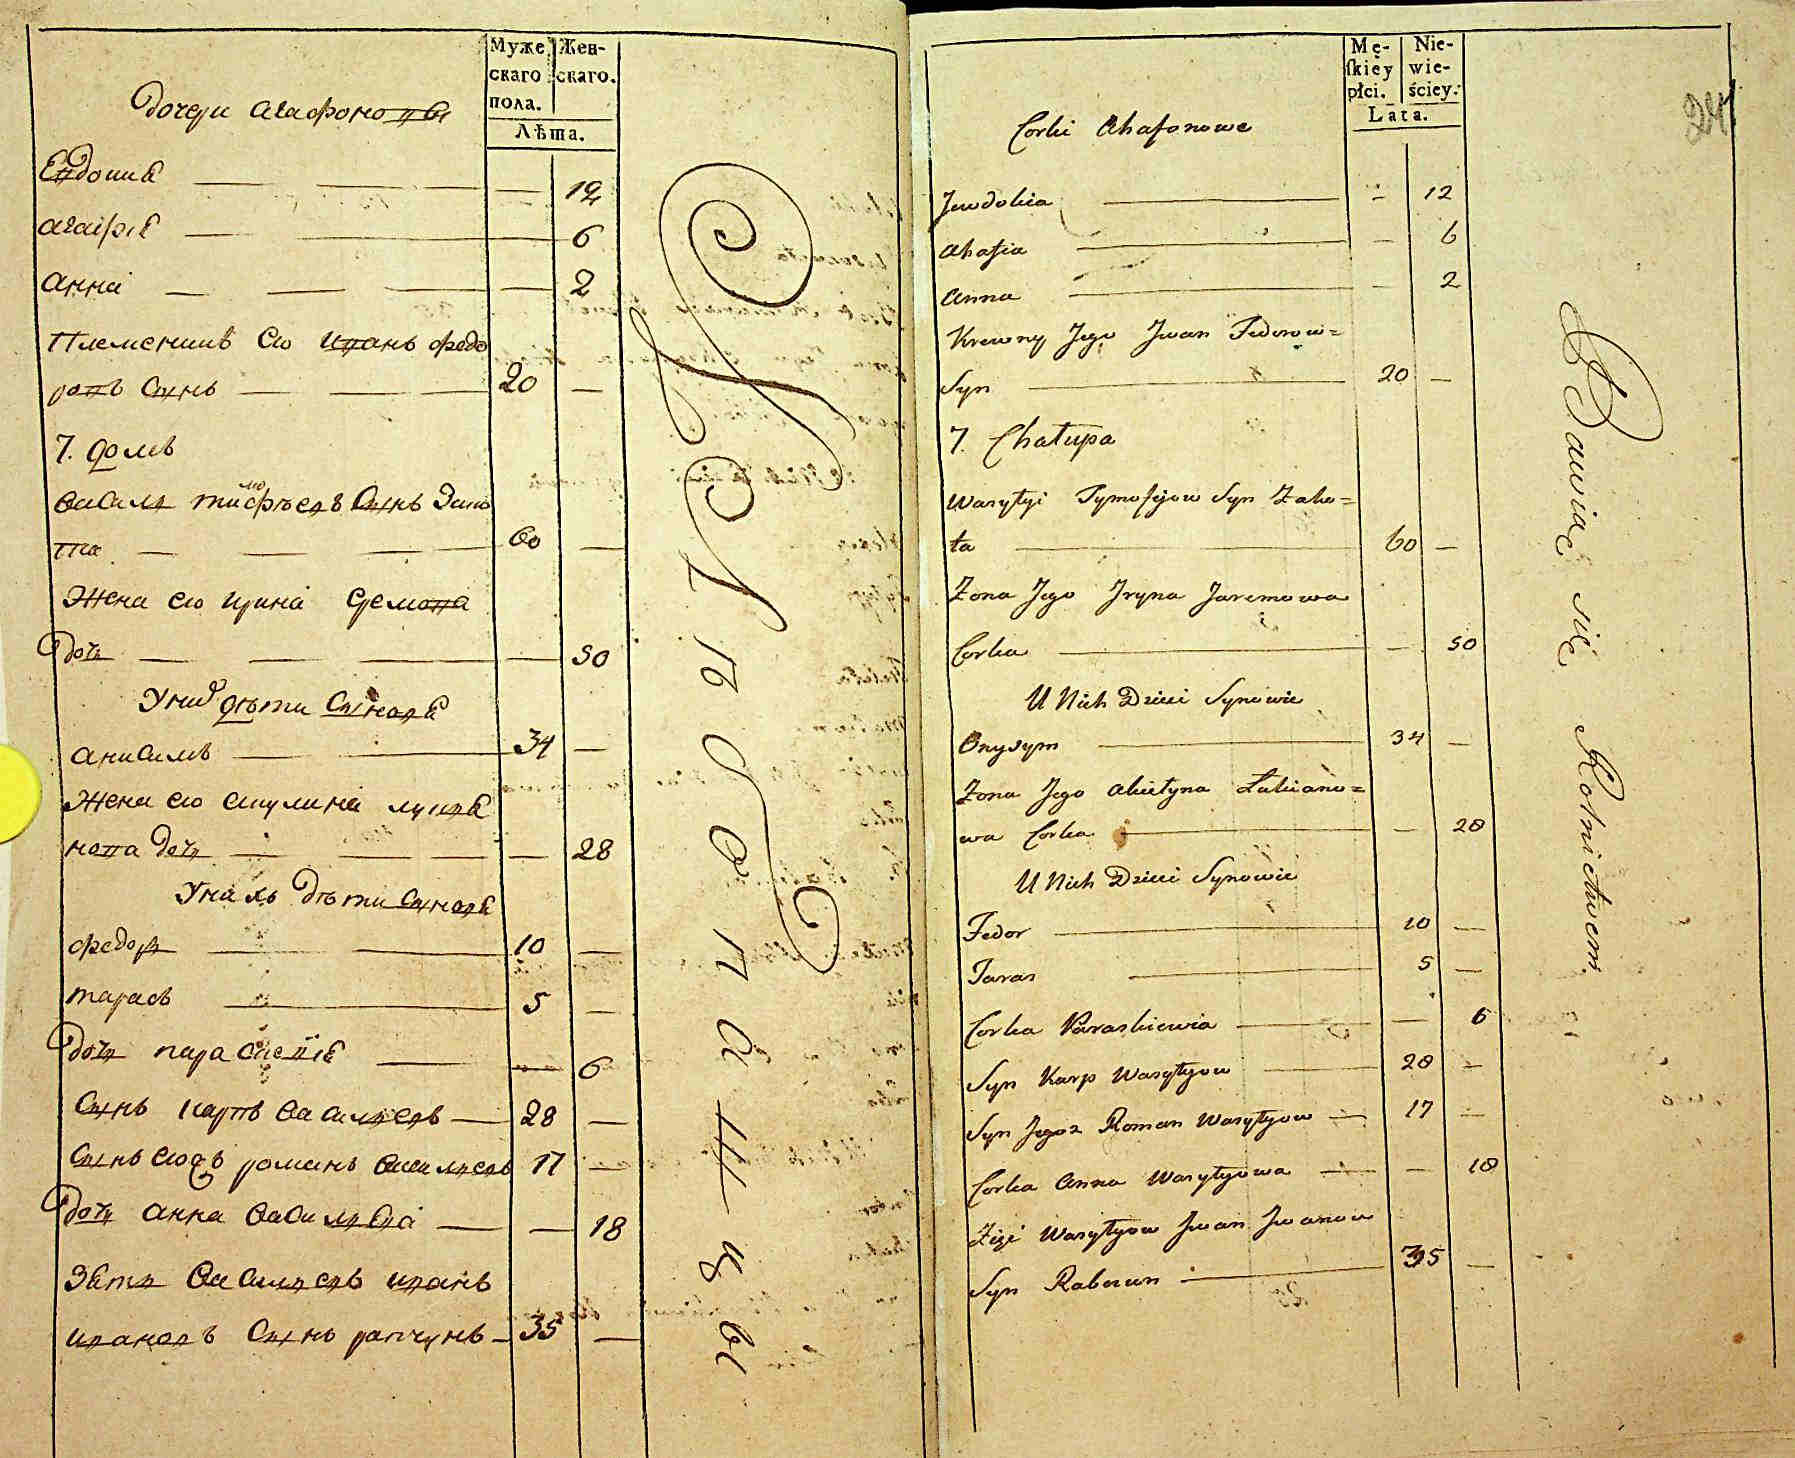 Муже- Жен-
скаго скаго.
пола.
Лѣта.
дочери агафоновы
Евдокия — — — — 12
агафия — — — 6
анна — — — — 2
племеникъ его иванъ федо
ровъ сынъ — — — 20 —
7. домъ
василь тимофѣевъ сынъ
та — — — — 60 —
жена его ирина еремова
дочь — — — — 50
У них дѣти сыновя
анисимъ — — 34 —
жена его акулина лукия
нова дочь — — — — 28
У нихъ дѣти сыновя
федоръ — — 10 —
тарасъ — 5 —
дочь параскевия — — 6
сынъ карпъ васильевъ — 28 —
сынъ его 2й романъ васильевъ 17 —
дочь анна васильева — — 18
зять васильевъ иванъ
ивановъ сынъ рапчунъ — 35 —
Mę- Nie-
skiéy wie-
płci. ściey.
Lata.
Corki Ahafonowe
Jewdokia — - 12
Ahafia — - 6
Anna — - 2
Krewny Jego Jwan Fedorow=
Syn — 20 —
7. Chałupa
Wasylyi Tymofijow Syn
ta — 60 —
Zona Jego Jryna Jaremowa
Corka — — 50
U Nich Dzieci Synowie
Onysym — 34 —
Zona Jego Akulyna Łukiano=
wa Corka — — 28
U Nich Dzieci Synowie
Fedor — 10 —
Taras — 5 —
Corka Paraskiewia — — 6
Syn Karp Wasylyow — 28 —
Syn Jego 2 Roman Wasylyow — 17 —
Corka Anna Wasylyowa — — 18
Zięć Wasylyow Jwan Jwanow
Syn — 35 —
Bawiąc się Rolnictwem